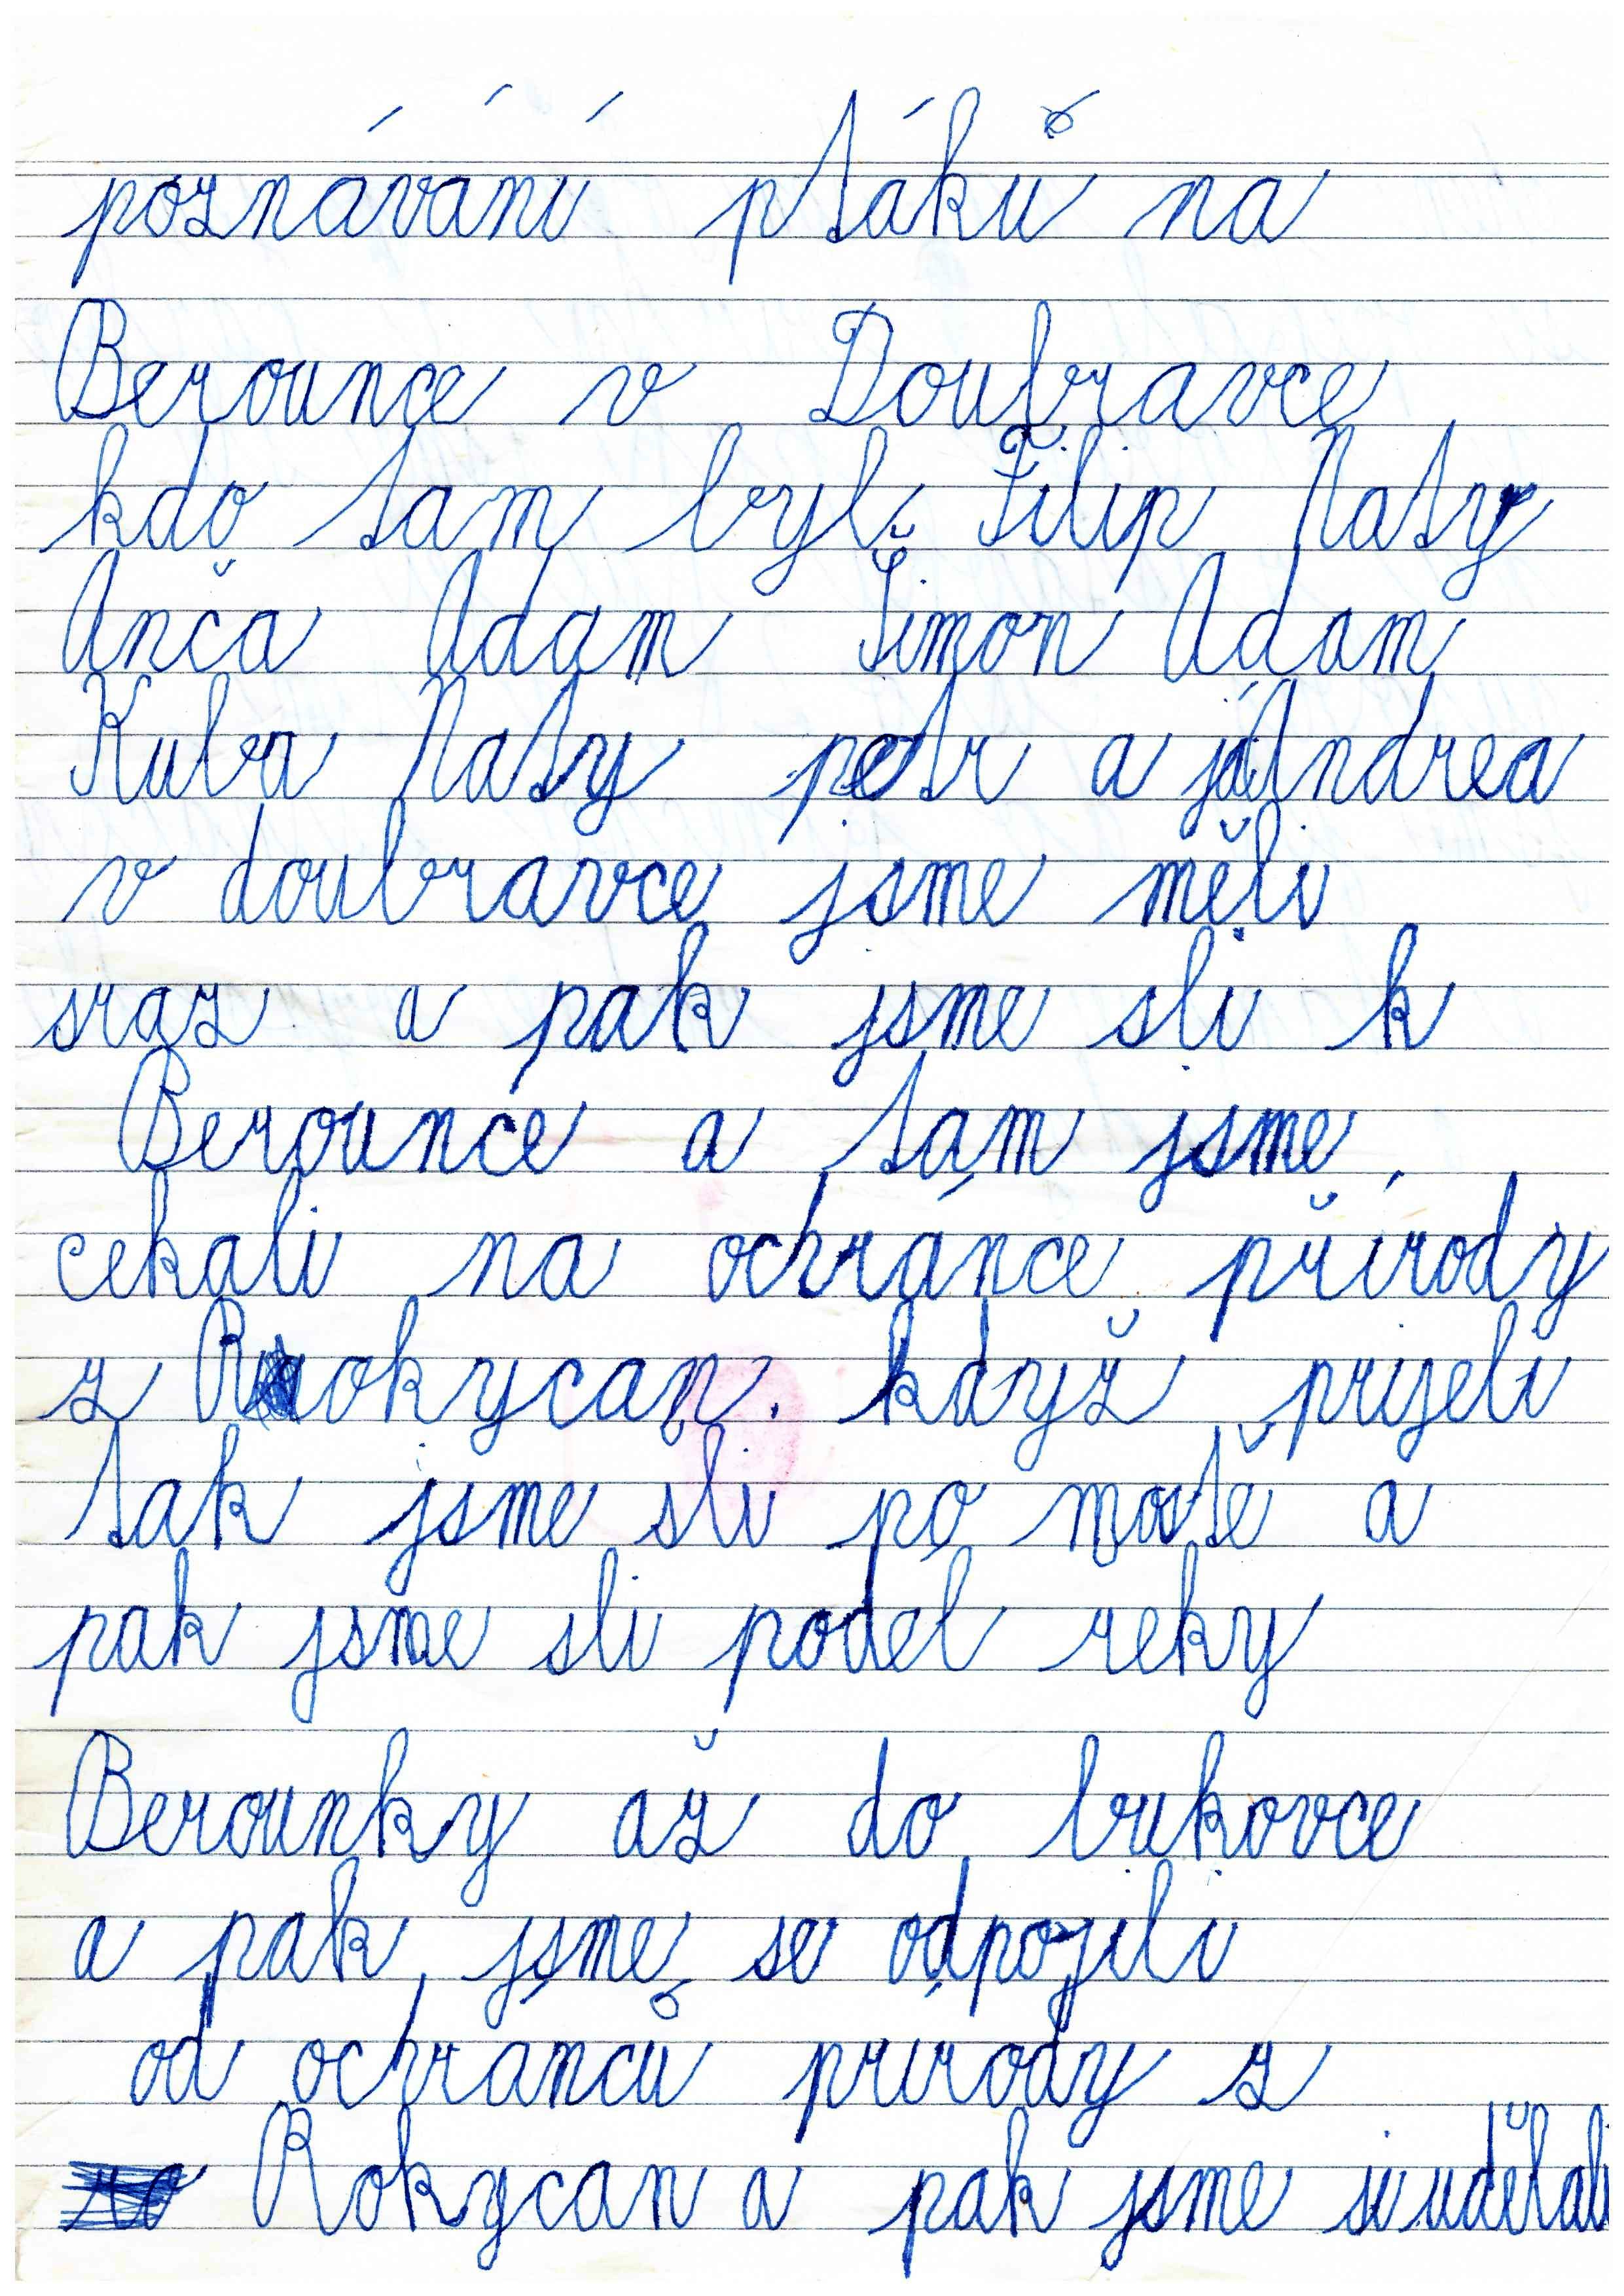 poznávání ptáků na
Berounce v Doubravce
kdo tam byl: Filip Naty
Anča Adam Šimon Adam
Kuba Naty petr a já Andrea
v doubravce jsme měli
sraz a pak jsme sli k
Berounce a tam jsme
cekali na ochránce přírody
z Rokycan. když prijeli
tak jsme sli po mostě a
pak jsme sli podel reky
Berounky až do bukovce
a pak jsme se odpojili
od ochránců prirody z
Rokycan a pak jsme si udělali